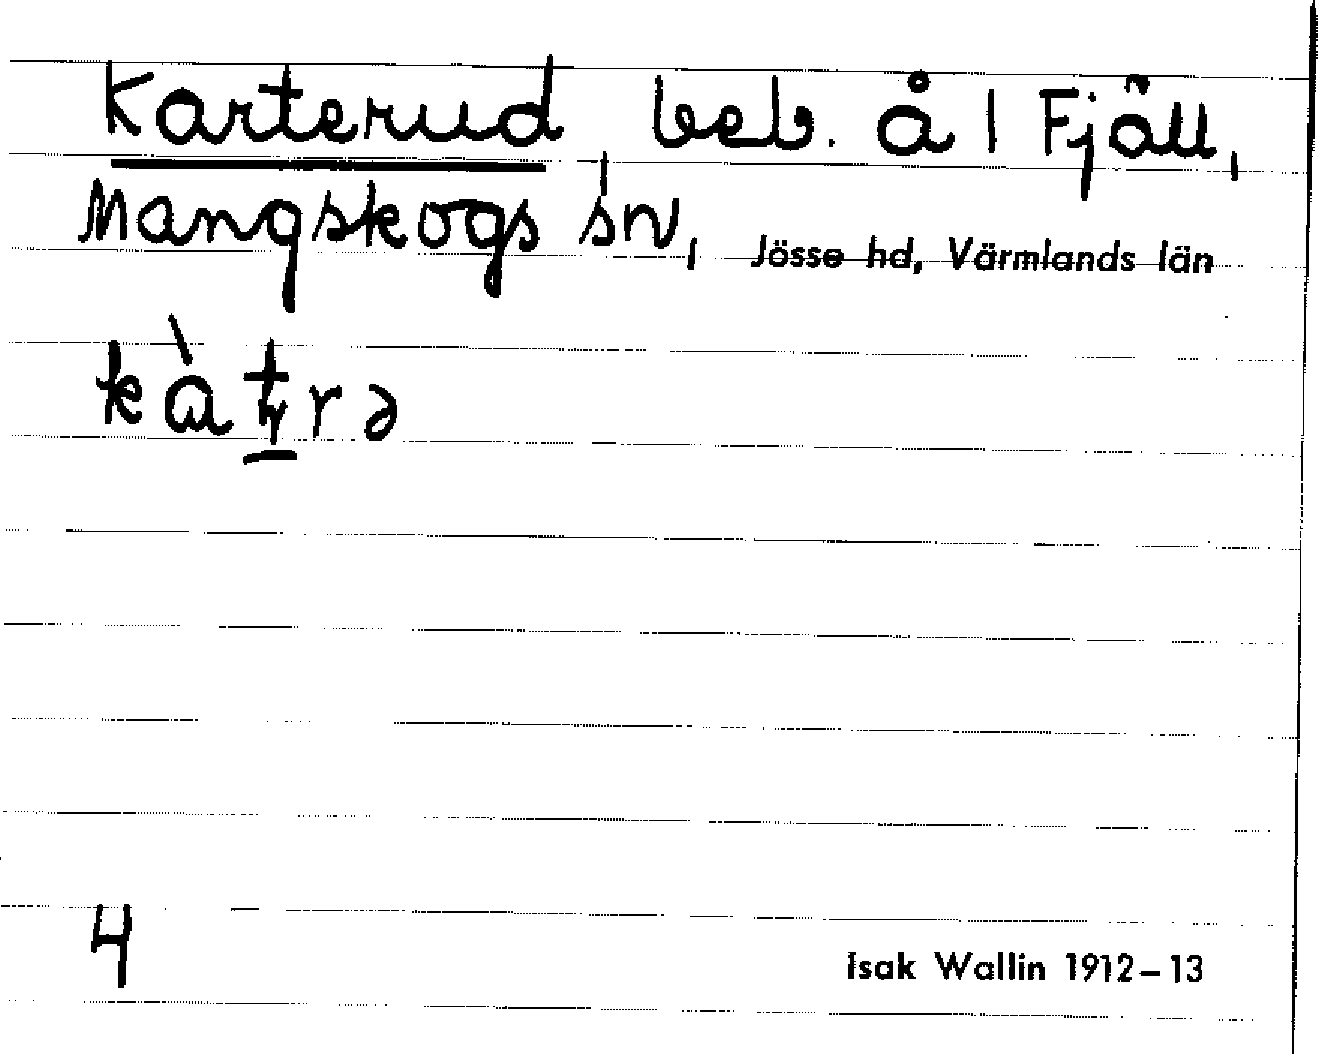 Karterud beb. å 1 Fjäll,
Mangskogs sn, Jösse hd, Värmlands län
kàt̠rə
4
Isak Wallin 1912–13